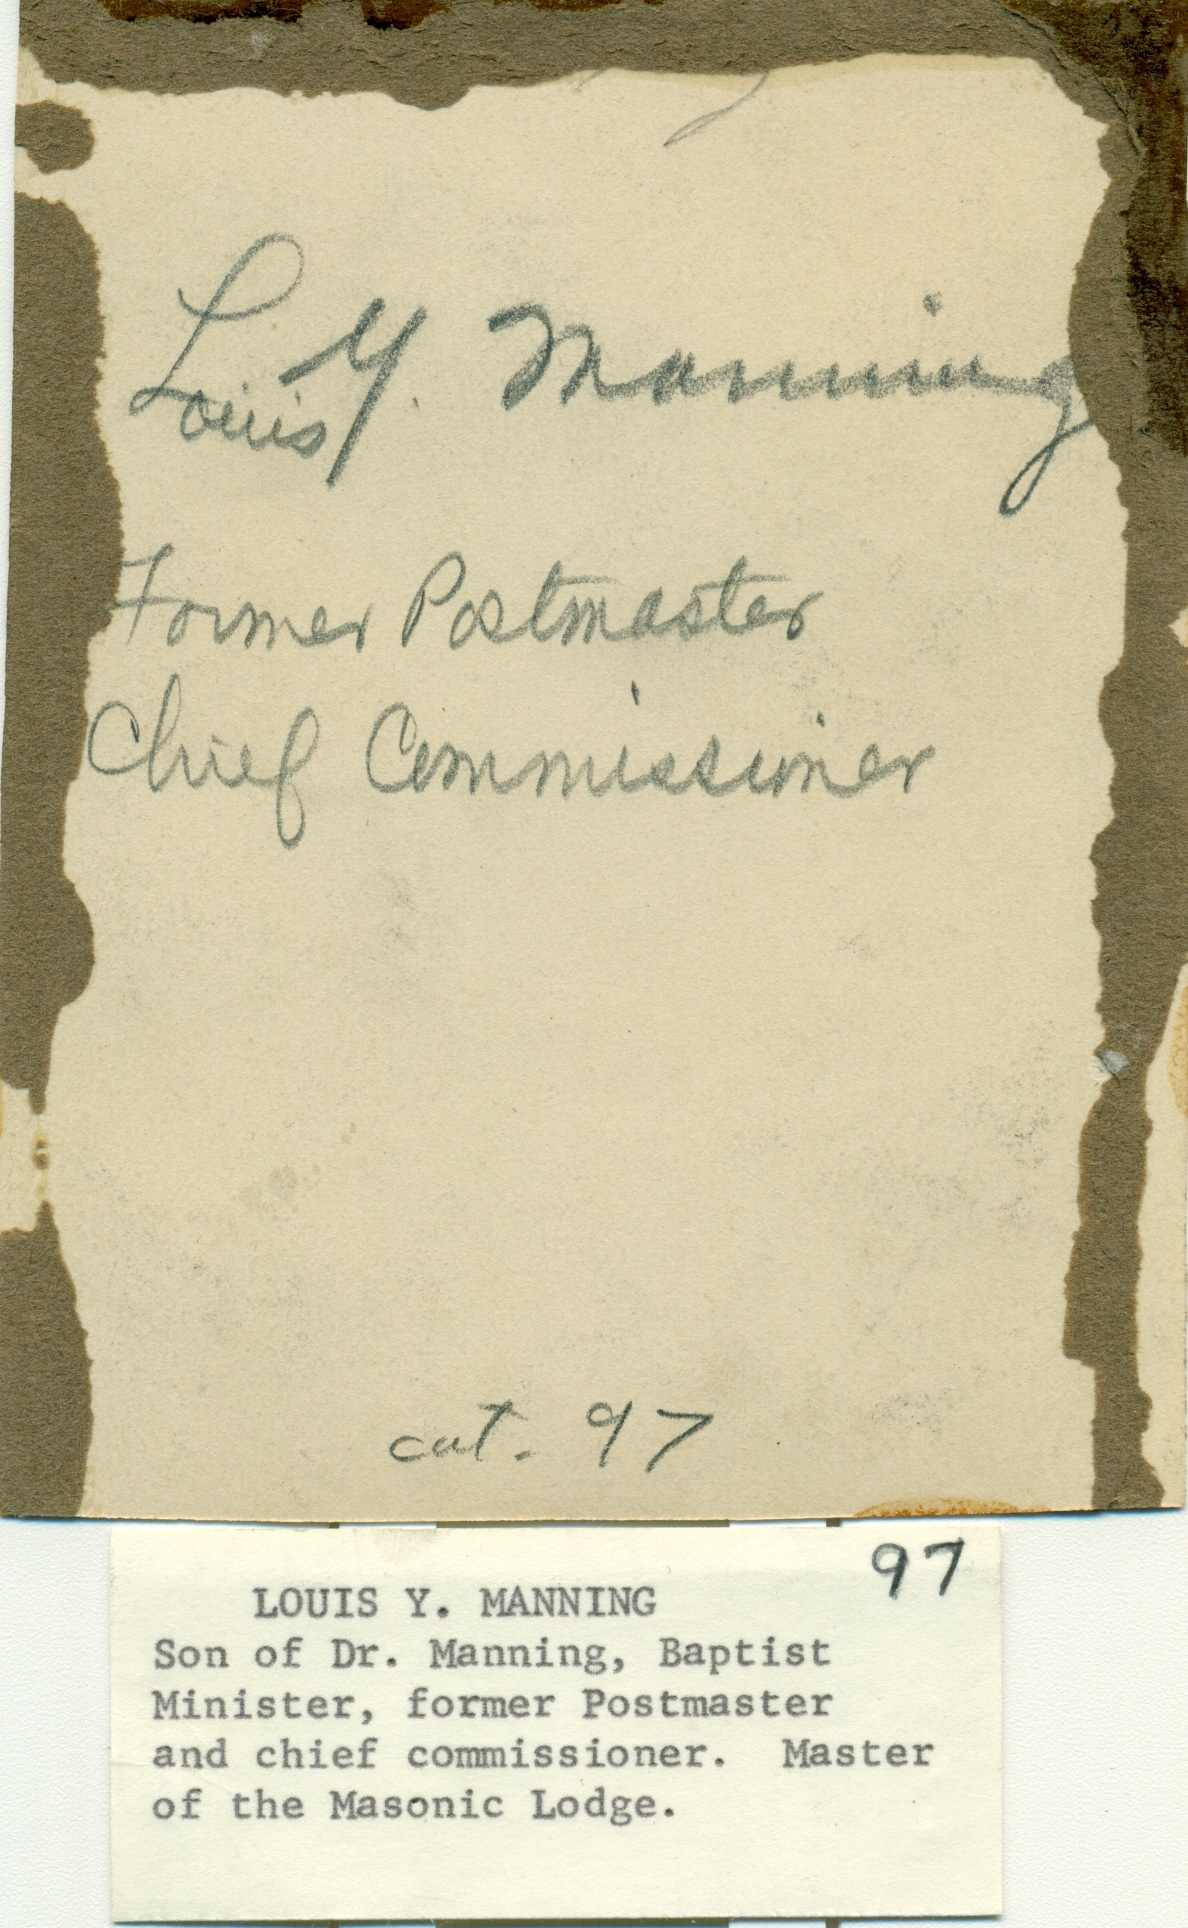 Louis Y. Manning
Former Postmaster
Chief Commissioner
cat. 97
97
LOUIS Y. MANNING
Son of Dr. Manning, Baptist
Minister, former Postmaster
and chief commissioner.  Master
of the Masonic Lodge.